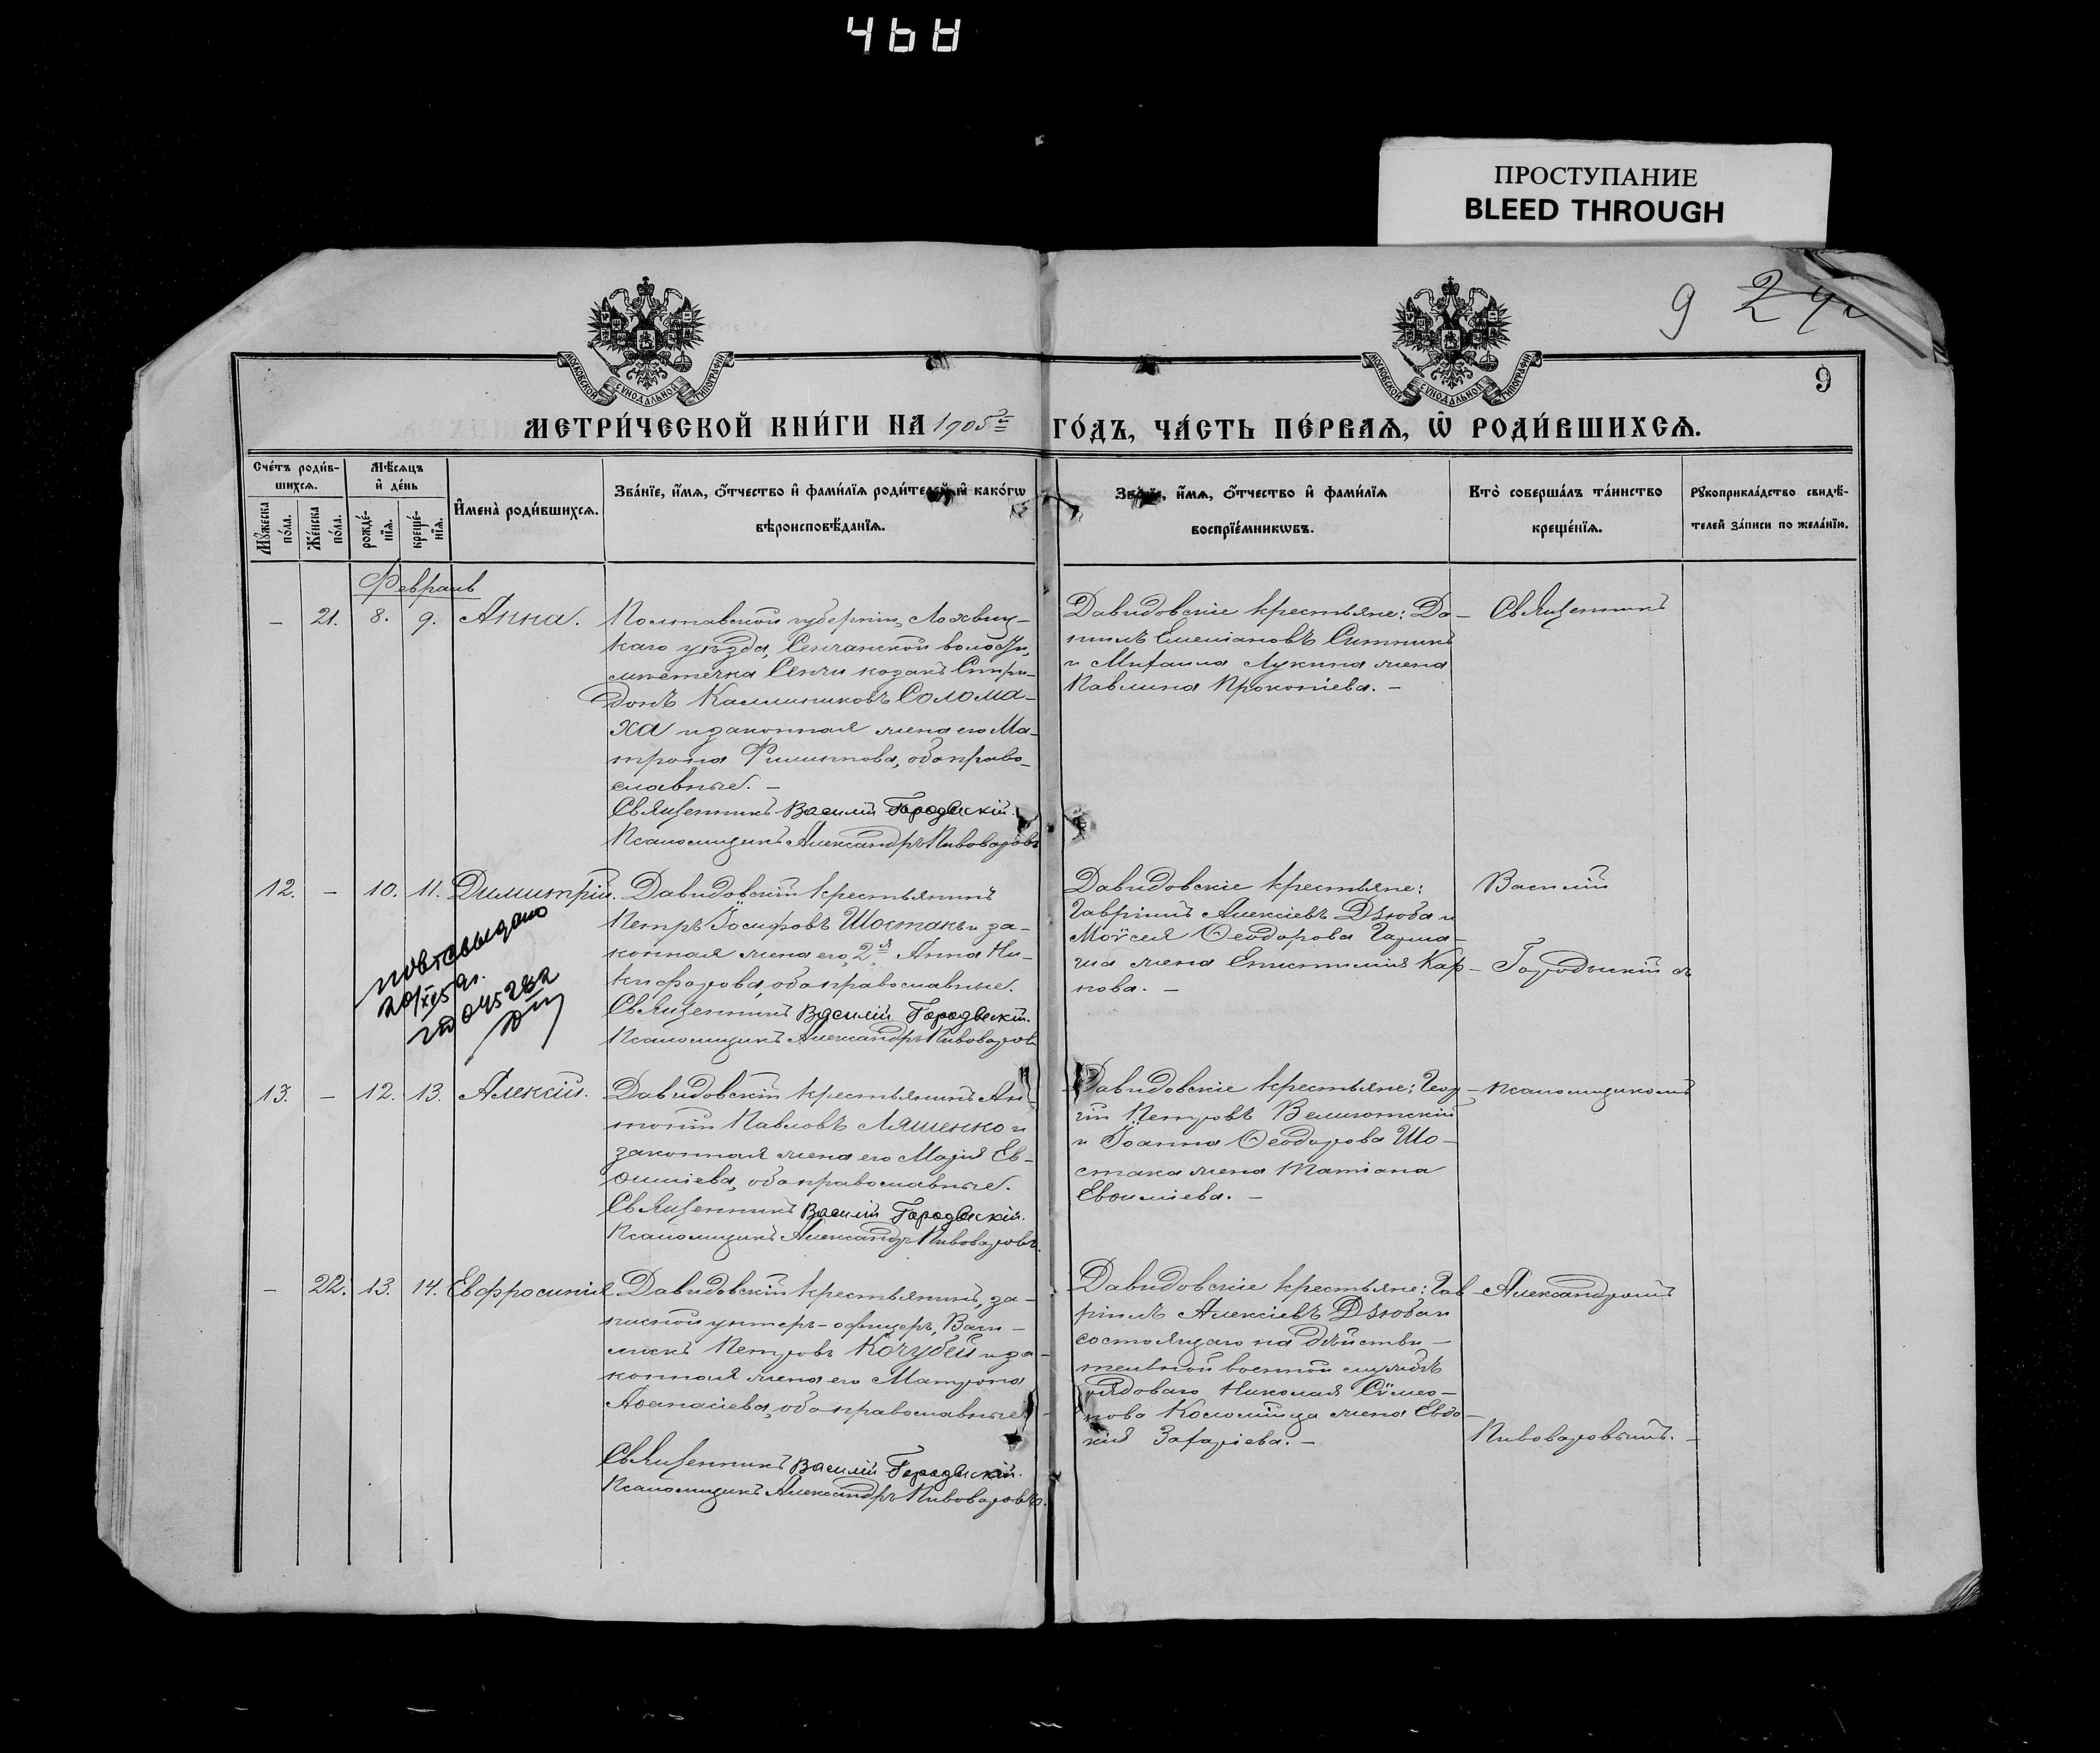 468
ПРОСТУПАНИЕ
BLEED THROUGH
9
МОСКОВСКОЙ СУНОДАЛЬНОЙ ТИПОГРАФІИ
МОСКОВСКОЙ СУНОДАЛЬНОЙ ТИПОГРАФІИ
9
МЕТРИ́ЧЕСКОЙ КНИ́ГИ НА 1905й
ГО́ДЪ, ЧА́СТЬ ПЕ́РВАѦ, Ѡ҆ РОДИ́ВШИХСѦ.
Сче́тъ роди́в-
шихсѧ.
Мꙋ́жеска по́ла.
Же́нска по́ла.
Мѣ́сѧцъ
и҆ де́нь
рожде́-нїѧ.
креще́-нїѧ.
И҆мена̀ роди́вшихсѧ.
Зва́нїе, и҆́мѧ, ѻ҆́тчество и҆ фами́лїѧ роди́телей, и҆ како́гѡ
вѣроисповѣ́данїѧ.
Зва́нїе, и҆́мѧ, ѻ҆́тчество и҆ фами́лїѧ
воспрїе́мникѡвъ.
Кто̀ соверша́лъ та́инство
креще́нїѧ.
Рꙋкоприкла́дство свидѣ́-
телей за́писи по жела́нїю.
Февраль
— 21. 8. 9. Анна.
Полтавской губерніи, Лохвиц-
каго уѣзда, Сенчанской волости,
мѣстечка Сенчи козакъ Спири-
донъ Каллиниковъ Солома-
ха и законная жена его Ма-
трона Филиппова, оба право-
славные. —
Священникъ Василій Городискій.
Псаломщикъ Александръ Пивоваровъ
Давидовскіе крестьяне: Да-
ніилъ Емеліановъ Ситникъ
и Михаила Лукина жена
Павлина Прокопіева. —
Священникъ
12. — 10. 11. Димитрій.
повт. выдано
Давидовскій крестьянинъ
Петръ Іосифовъ Шостакъ и за-
конная жена его, 2я Анна Ни-
кифорова, оба православные.
Священникъ Василій Городискій.
Псаломщикъ Александръ Пивоваровъ
Давидовскіе крестьяне:
Гавріилъ Алексіевъ Дзюба и
Моѵсея Ѳеодорова
жена Епистимія Кар-
нова. —
Василій
Городискій съ
13. — 12. 13. Алексій.
Давидовскій крестьянинъ Ан-
тоній Павловъ Ляшенко и
законная жена его Марія Ев-
ѳиміева, оба православные.
Священникъ Василій Городискій.
Псаломщикъ Александръ Пивоваровъ.
Давидовскіе крестьяне: Геор-
гій Петровъ
и Іоанна Ѳеодорова Шо-
стака жена Татіана
Евѳиміева. —
псаломщикомъ
— 22. 13. 14. Евфросинія
Давидовскій крестьянинъ, за-
пасной унтеръ-офицеръ, Васи-
лискъ Петровъ Кочубей и за-
конная жена его Матрона
Аѳанасіева, оба православные.
Священникъ Василій Городискій.
Псаломщикъ Александръ Пивоваровъ.
Давидовскіе крестьяне: Гав-
ріилъ Алексіевъ Дзюба и
состоящаго на дѣйстви-
тельной военной службѣ
рядоваго Николая Сѵмео-
нова Коломійца жена Евдо-
кія Захаріева. —
Александромъ
Пивоваровымъ. —